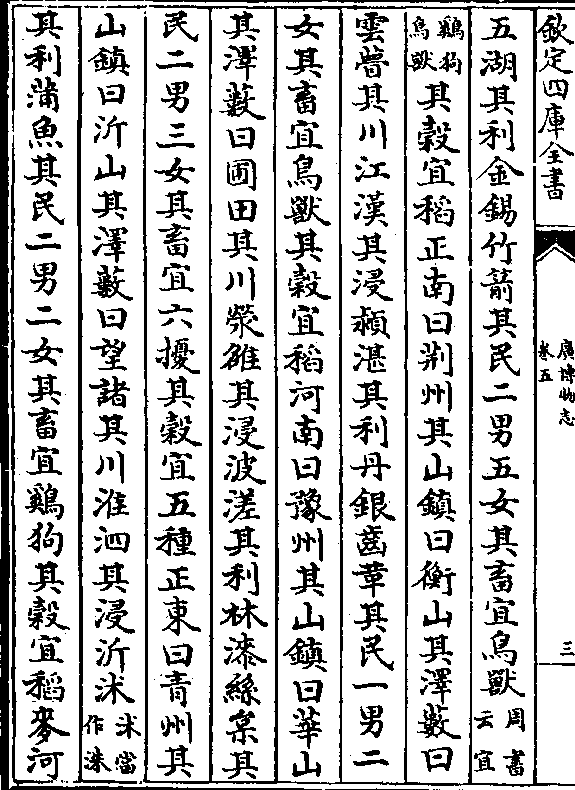 欽定四庫全書
廣博物志
卷五
三
五湖其利金錫竹箭其民二男五女其畜宜鳥獸周書云宜
鷄狗鳥獸其穀宜稻正南曰荆州其山鎮曰衡山其澤藪曰
雲瞢其川江漢其浸潁湛其利丹銀齒革其民一男二
女其畜宜鳥獸其穀宜稻河南曰豫州其山鎮曰華山
其澤藪曰圃田其川滎雒其浸波溠其利林漆絲枲其
民二男三女其畜宜六擾其穀宜五種正東曰青州其
山鎮曰沂山其澤藪曰望諸其川淮泗其浸沂沭沭當作洙
其利蒲魚其民二男二女其畜宜鷄狗其穀宜稻麥河